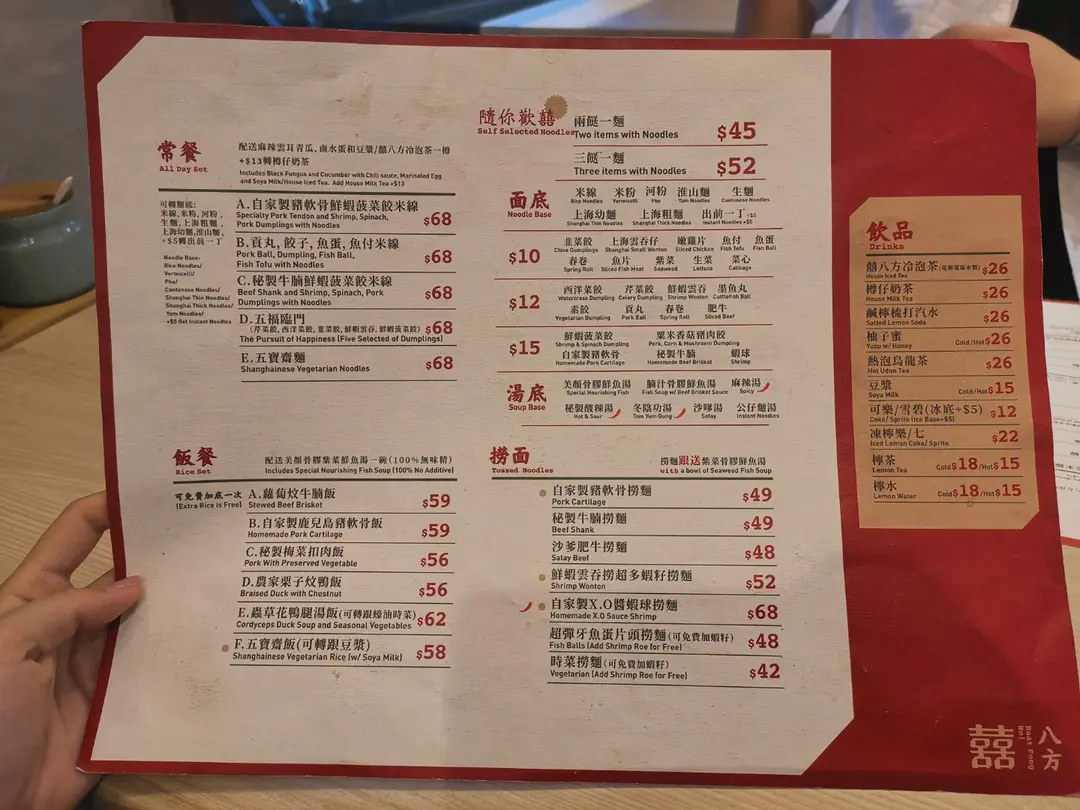 常餐
All Day Set
配送麻辣雲耳青瓜、鹵水蛋和豆漿/囍八方冷泡茶一樽
+$13轉樽仔奶茶
Includes Black Fungus and Cucumber with Chili sauce, Marinated Egg
and Soya Milk/House Iced Tea. Add House Milk Tea +$13
可轉麵底:
米線,米粉,河粉,
生麵,上海粗麵,
上海幼麵,淮山麵,
+$5轉出前一丁
Noodle Base:
Rice Noodles/
Vermicelli/
Pho/
Cantonese Noodles/
Shanghai Thin Noodles/
Shanghai Thick Noodles/
Yam Noodles/
+$5 Get Instant Noodles
A.自家製豬軟骨鮮蝦菠菜餃米線
Specialty Pork Tendon and Shrimp, Spinach,
Pork Dumplings with Noodles
$68
B.貢丸,餃子,魚蛋,魚付米線
Pork Ball, Dumpling, Fish Ball,
Fish Tofu with Noodles
$68
C.秘製牛腩鮮蝦菠菜餃米線
Beef Shank and Shrimp, Spinach, Pork
Dumplings with Noodles
$68
D.五福臨門
(芹菜餃,西洋菜餃,韭菜餃,鮮蝦雲吞,鮮蝦菠菜餃)
The Pursuit of Happiness (Five Selected of Dumplings)
$68
E.五寶齋麵
Shanghainese Vegetarian Noodles
$68
飯餐
Rice Set
配送美顏骨膠紫菜鮮魚湯一碗(100%無味精)
Includes Special Nourishing Fish Soup (100% No Additive)
可免費加底一次
(Extra Rice is Free)
A.蘿蔔炆牛腩飯
Stewed Beef Brisket
$59
B.自家製鹿兒島豬軟骨飯
Homemade Pork Cartilage
$59
C.秘製梅菜扣肉飯
Pork With Preserved Vegetable
$56
D.農家栗子炆鴨飯
Braised Duck with Chestnut
$56
E.蟲草花鴨腿湯飯(可轉跟蠔油時菜)
Cordyceps Duck Soup and Seasonal Vegetables
$62
F.五寶齋飯(可轉跟豆漿)
Shanghainese Vegetarian Rice (w/ Soya Milk)
$58
隨你歡囍
Self Selected Noodles
兩餸一麵
Two items with Noodles
$45
三餸一麵
Three items with Noodles
$52
面底
Noodle Base
米線 米粉 河粉 淮山麵 生麵
Rice Noodles Vermicelli Pho Yam Noodles Cantonese Noodles
上海幼麵 上海粗麵 出前一丁+$5
Shanghai Thin Noodles Shanghai Thick Noodles Instant Noodles +$5
$10
韭菜餃 上海雲吞仔 嫩雞片 魚付 魚蛋
Chive Dumplings Shanghai Small Wonton Sliced Chicken Fish Tofu Fish Ball
春卷 魚片 紫菜 生菜 菜心
Spring Roll Sliced Fish Meat Seaweed Lettuce Cabbage
$12
西洋菜餃 芹菜餃 鮮蝦雲吞 墨魚丸
Watercress Dumpling Celery Dumpling Shrimp Wonton Cuttlefish Ball
素餃 貢丸 春卷 肥牛
Vegetarian Dumpling Pork Ball Spring Roll Sliced Beef
$15
鮮蝦菠菜餃 粟米香菇豬肉餃
Shrimp & Spinach Dumpling Pork, Corn & Mushroom Dumpling
自家製豬軟骨 秘製牛腩 蝦球
Homemade Pork Cartilage Homemade Beef Brisket Shrimp
湯底
Soup Base
美顏骨膠鮮魚湯 腩汁骨膠鮮魚湯 麻辣湯
Special Nourishing Fish Fish Soup w/ Beef Brisket Sauce Spicy
秘製酸辣湯 冬陰功湯 沙嗲湯 公仔麵湯
Hot & Sour Tom Yum Gung Satay Instant Noodles
撈面
Tossed Noodles
撈麵跟送紫菜骨膠鮮魚湯
with a bowl of Seaweed Fish Soup
自家製豬軟骨撈麵
Pork Cartilage
$49
秘製牛腩撈麵
Beef Shank
$49
沙爹肥牛撈麵
Satay Beef
$48
鮮蝦雲吞撈超多蝦籽撈麵
Shrimp Wonton
$52
自家製X.O醬蝦球撈麵
Homemade X.O Sauce Shrimp
$68
超彈牙魚蛋片頭撈麵(可免費加蝦籽)
Fish Balls (Add Shrimp Roe for Free)
$48
時菜撈麵(可免費加蝦籽)
Vegetarian (Add Shrimp Roe for Free)
$42
飲品
Drinks
囍八方冷泡茶
House Iced Tea
$26
樽仔奶茶
House Milk Tea
$26
鹹檸梳打汽水
Salted Lemon Soda
$26
柚子蜜
Yuzu w/ Honey
Cold/Hot$26
熱泡烏龍茶
Hot Udon Tea
$26
豆漿
Soya Milk
Cold/Hot$15
可樂/雪碧(冰底+$5)
Coke/ Sprite (Ice Base+$5)
$12
凍檸樂/七
Iced Lemon Coke/ Sprite
$22
檸茶
Lemon Tea
Cold$18/Hot$15
檸水
Lemon Water
Cold$18/Hot$15
囍
Baat Fong
Hei
八方